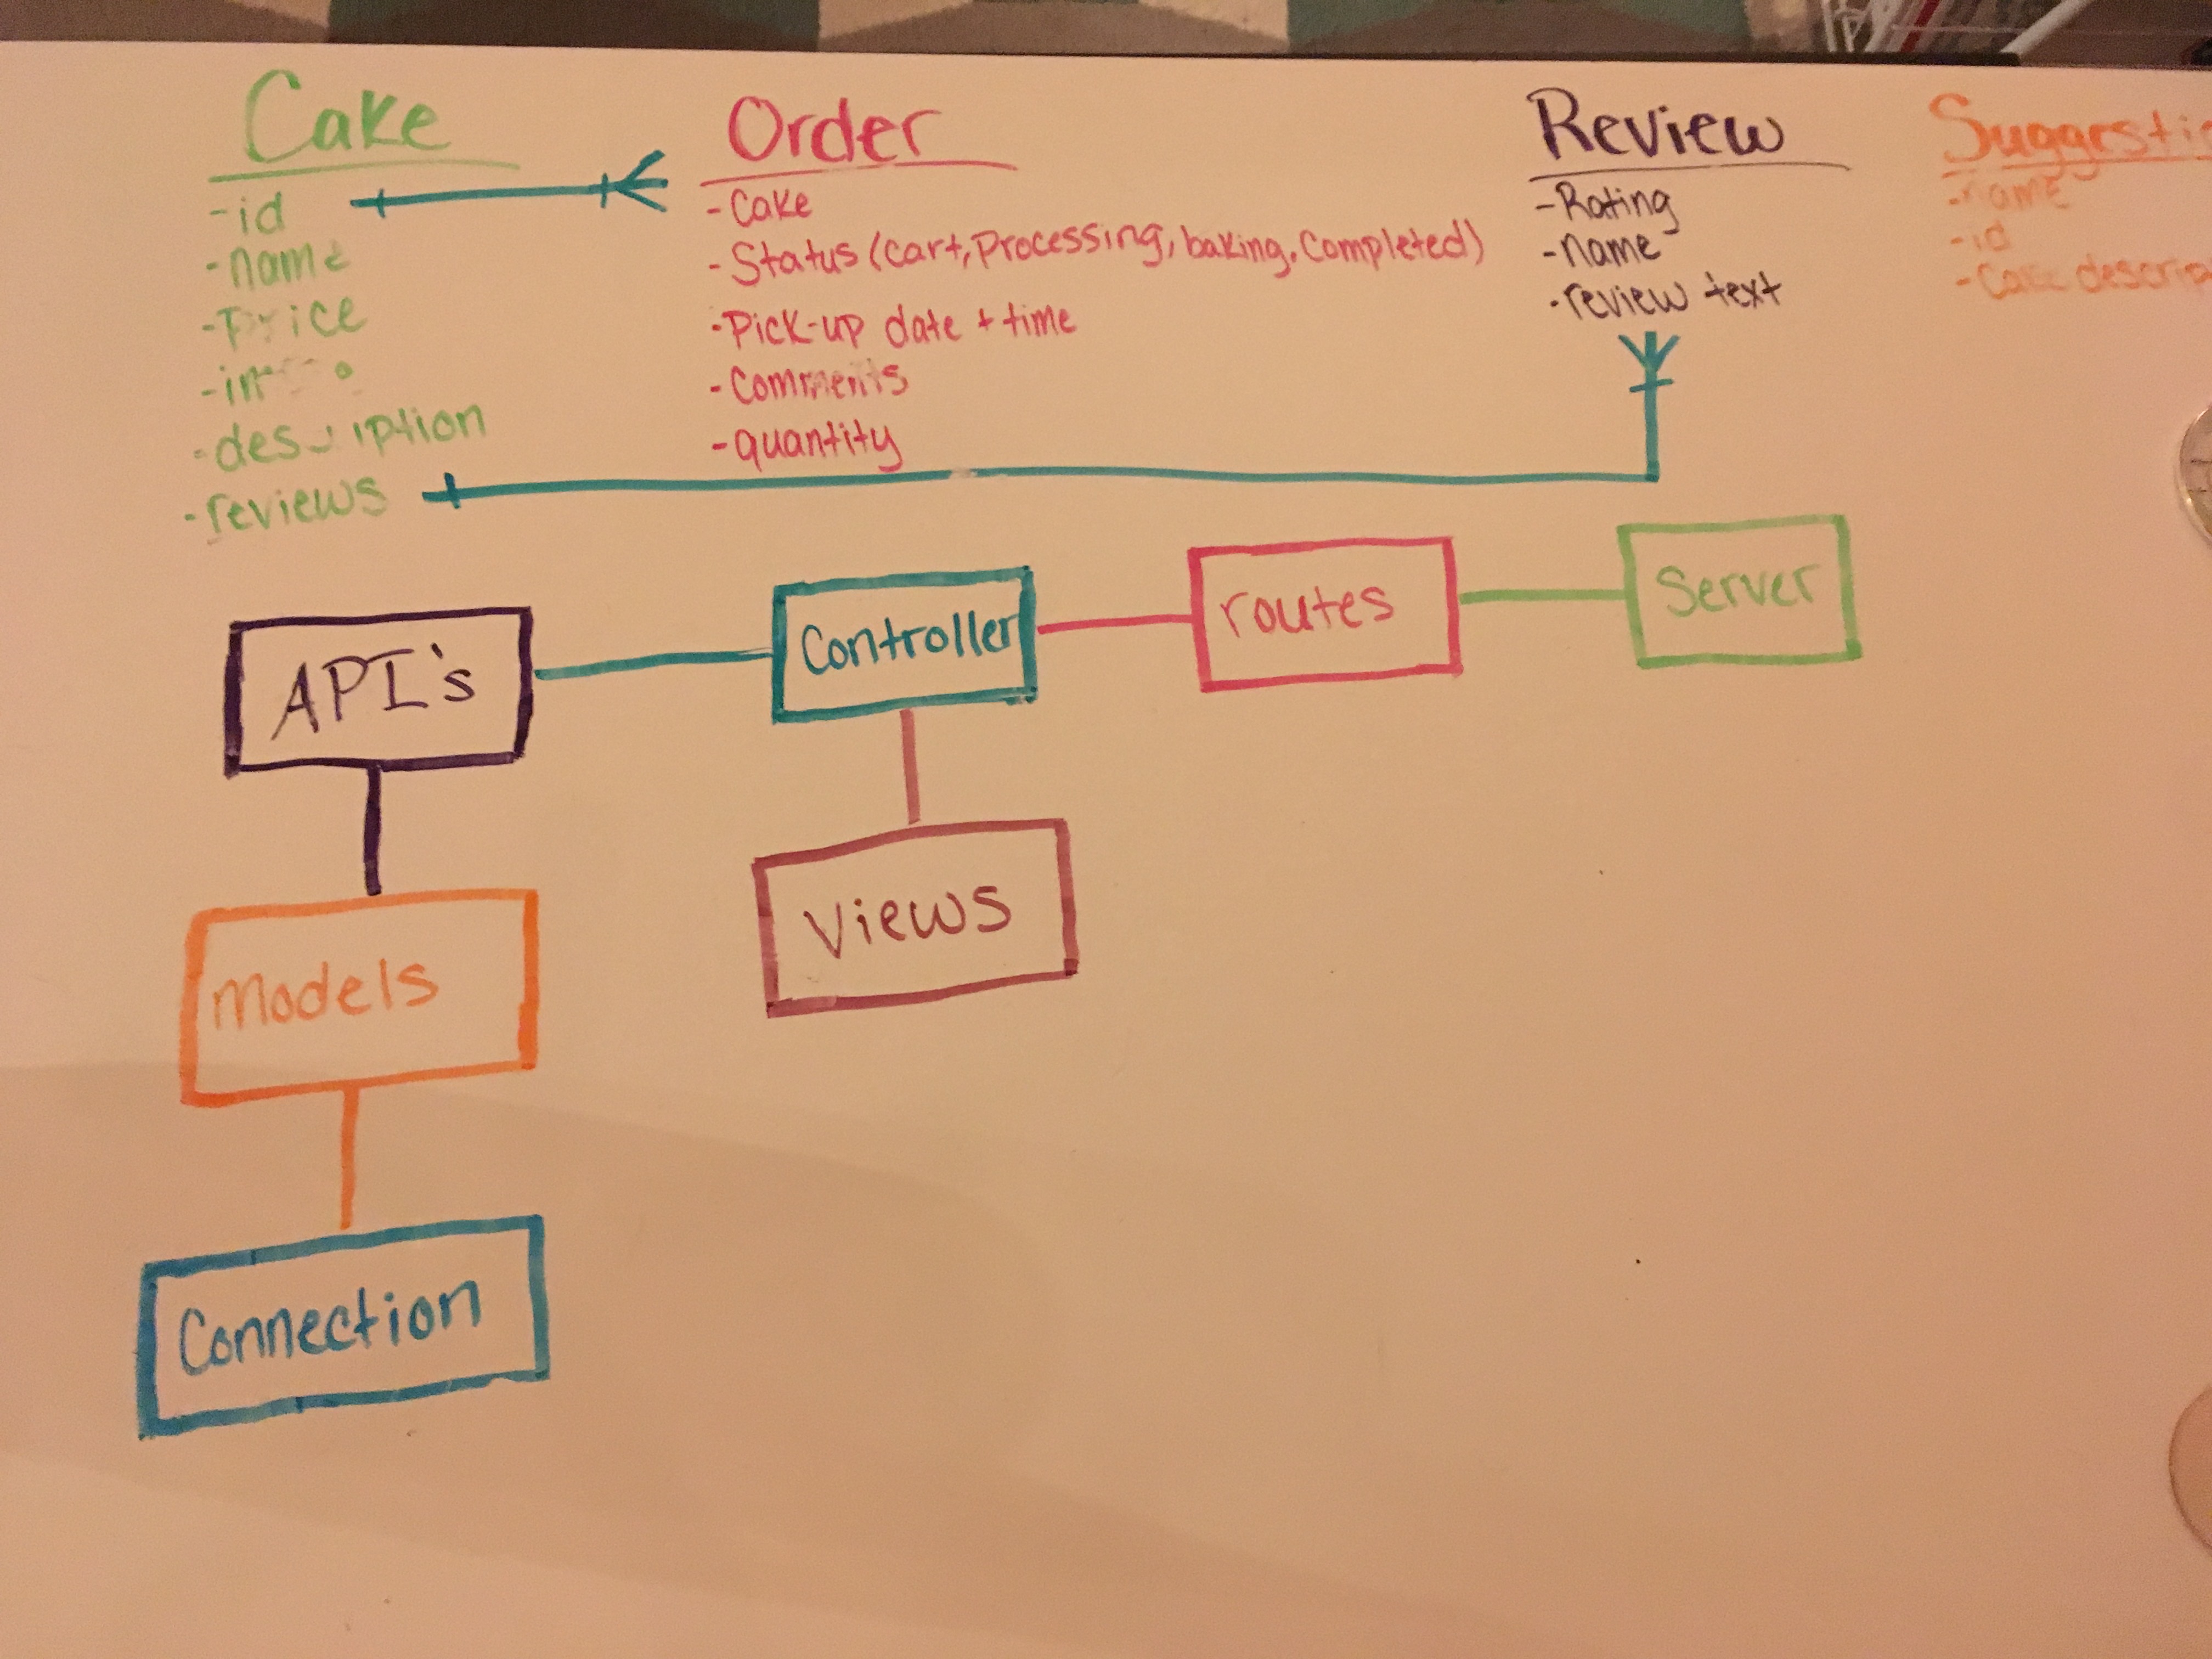 Cake
-id
-name
-Price
-description
-reviews
Order
-Cake
-Status (Cart, Processing, baking, Completed)
-Pick-up date + time
-Comments
-quantity
Review
-Rating
-name
-review text
-name
-id
-Cake
API's
Controller
routes
Server
Models
Views
Connection